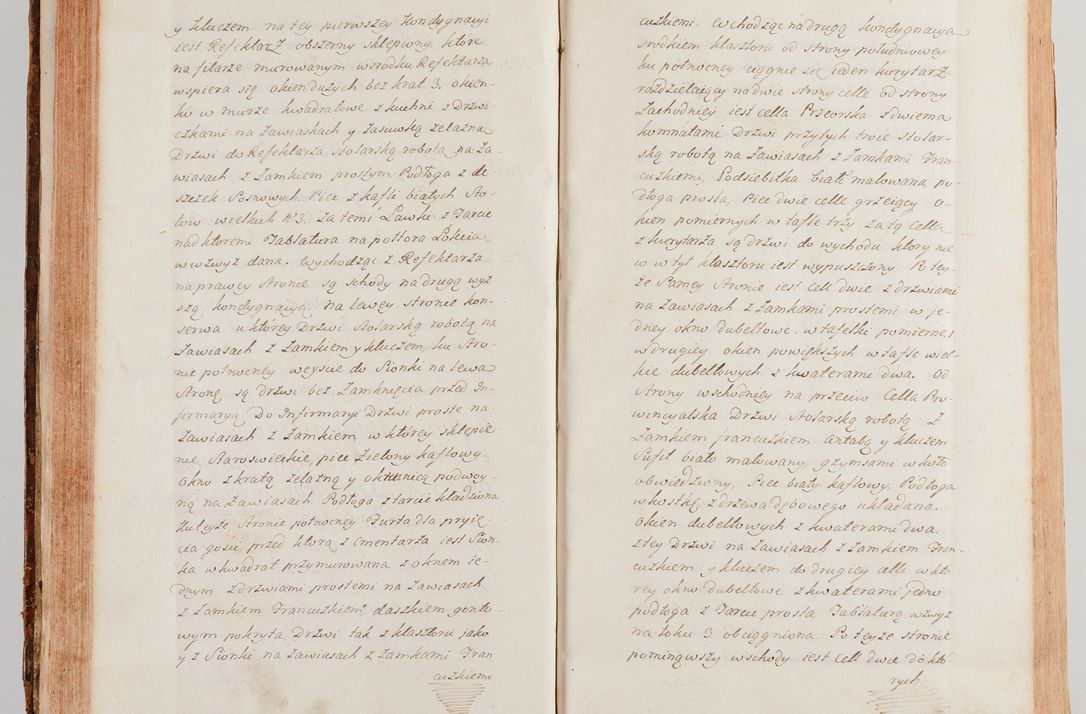 y kluczem na tey pierwszey kondygnacyi
iest Refektarz obszerny sklepiony, które
na filarze murowanym w srodku Refektarza
wspiera się okien dużych bez krat 3. okien-
ko w murze kwadratowe z kuchni z Drzwi-
czkami na zawiaskach y zasuwką żelazną
Drzwi do Refektarza stolarską robotą na Za-
wiasach z Zamkiem prostym Podłoga z de-
szczek Sosnowych. Piec z kafli białych Sto-
łow wielkich N° 3. za temi Ławki z Tarcic
nad ktoremi Tablatura na połtora Łokcia
w wzwyż dana. Wychodząc z Refektarza
na prawey stronie są schody na drugą wyż
szą kondygnacyą na lewey stronie kon-
serwa u ktorey Drzwi stolarską robotą na
Zawiasach z Zamkiem y kluczem, ku stro-
nie połnocney weyscie do Sionki na lewą
stronę są drzwi bez Zamknięcia przed In-
firmaryą. Do Infirmaryi Drzwi proste na
Zawiasach z Zamkiem w ktorey sklepie-
nie staroswieckie, piec zielony kaflowy
okno z kratą żelazną y okiennicą podwoy-
ną na Zawiasach Podłoga z tarcic kładziona
tuteyże stronie połnocney Furta dla przyię-
cia gości, przed ktorą z Cmentarza iest Sion-
ka w kwadrat przymurowana z oknem ie-
dnym z drzwiami prostemi na Zawiasach
z Zamkiem Francuzkiem daszkiem gonto-
wym pokryta Drzwi tak z klasztoru jako
y z Sionki na Zawiasach z Zamkami Fran
cuzkiemi
cuzkiemi. Wchodząc na drugą kondygnacyą
srodkiem klasztoru od strony południowey
ku połnocney ciągnie się ieden kurytarz
rozdzielaiący na dwie strony celle od strony
Zachodniey iest cella Przeorska z dwiema
komnatami Drzwi przy tych troie stolar-
ską robotą na Zawiasach z Zamkami Fran-
cuzkiemi, Podsiebitka biało malowana po-
dłoga prosta, Piec dwie celle grzeiący o-
kien pomiernych w tafle trzy za tą Cellą
z kurytarza są drzwi do wychodu ktory nie
w tył klasztoru iest wypuszczony. Po tey-
że Samey stronie iest Cell dwie z drzwiami
na Zawiasach z Zamkami prostemi w je-
dney okno dubeltowe w tafelki pomierne,
w drugiey okien powiększych w tafle wiel-
kie dubeltowych z kwaterami dwa. Od
strony wschodniey na przeciw Cella Pro-
wincyalska Drzwi stolarską robotą z
Zamkiem francuzkiem antabą y kluczem
Sufit biało malowany gzymsami w koło
obwiedziony, Piec biały kaflowy. Podłoga
w kostkę z drzewa dębowego układana.
Okien dubeltowych z kwaterami dwa
z tey Drzwi na Zawiasach z Zamkiem Fran-
cuzkiem y kluczem do drugiey celli w kto-
rey okno dubeltowe z kwaterami jedno
podłoga z Tarcic prosta Tablaturą wzwyż
na łokci 3 obciągniona Po teyże stronie
pominąwszy wschody iest Cell dwie do któ-
rych